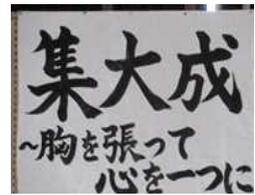 集大成
~胸を張って
心を一つに